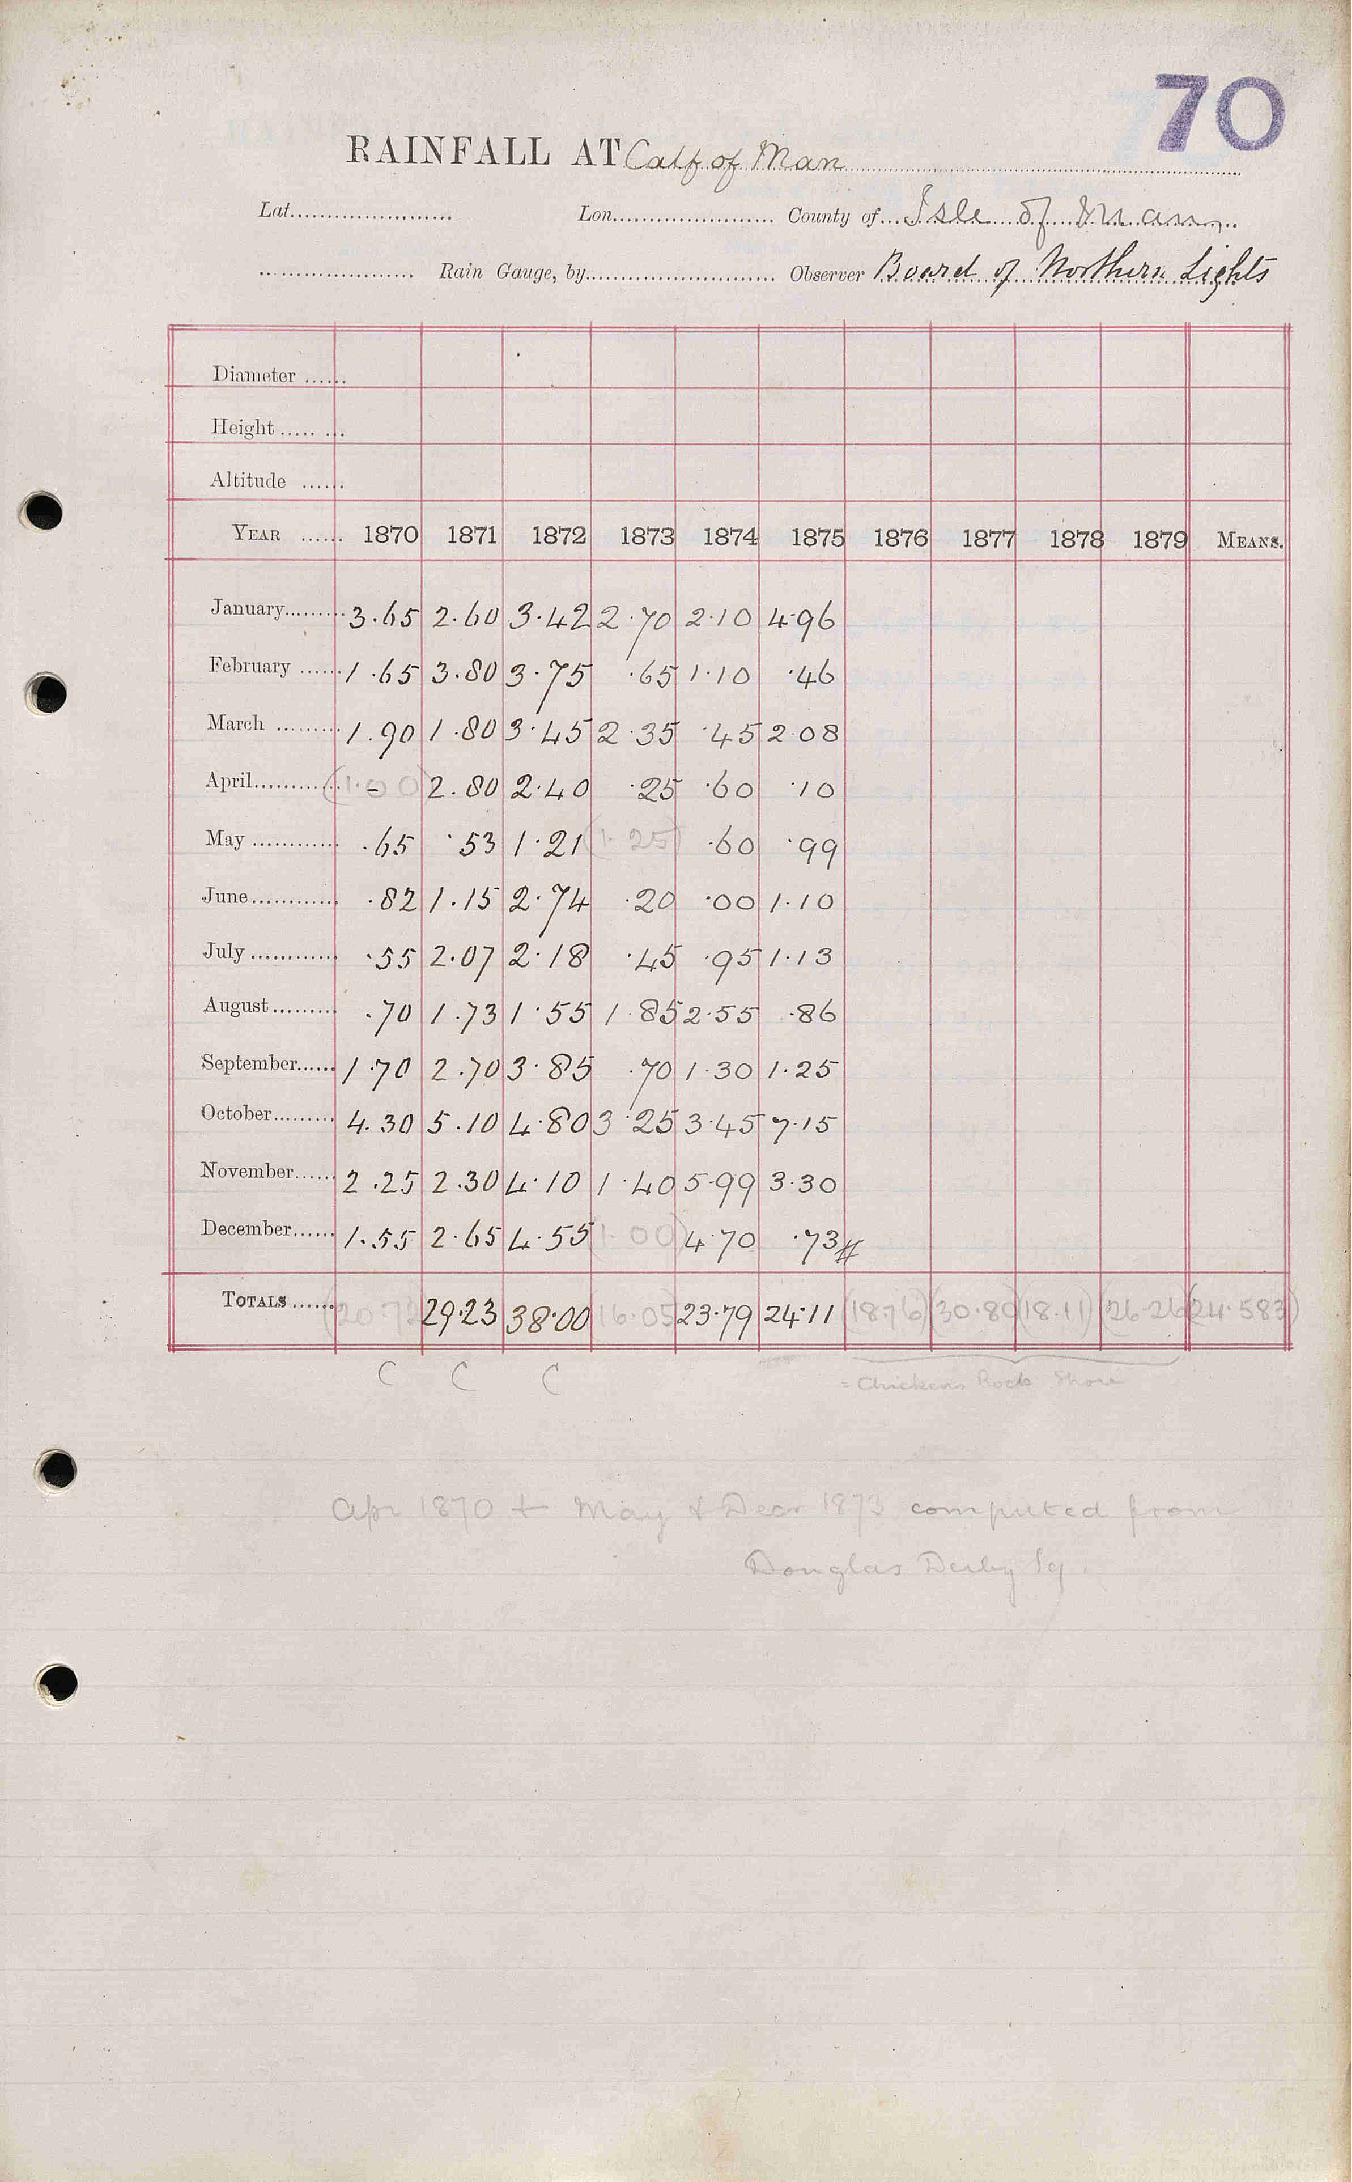 70
RAINFALL AT Calf of Man
Lat. Lon. County of Isle of Man
Rain Gauge, by Observer Board of Northern Lights
Diameter
Height
Altitude
YEAR 1870 1871 1872 1873 1874 1875 1876 1877 1878 1879 MEANS.
January 3.65 2.60 3.42 2.70 2.10 4.96
February 1.65 3.80 3.75 .65 1.10 .46
March 1.90 1.80 3.45 2.35 .45 2.08
April (1.00) - 2.80 2.40 .25 .60 .10
May .65 .53 1.21 (1.25) .60 .99
June .82 1.15 2.74 .20 .00 1.10
July .55 2.07 2.18 .45 .95 1.13
August .70 1.73 1.55 1.85 2.55 .86
September 1.70 2.70 3.85 .70 1.30 1.25
October 4.30 5.10 4.80 3.25 3.45 7.15
November 2.25 2.30 4.10 1.40 5.99 3.30
December 1.55 2.65 4.55 (1.00) 4.70 .73 #
TOTALS (20.72) 29.23 38.00 (16.05) 23.79 24.11 (18.76) (30.80) (18.11) (26.26) (24.583)
C C C = Chickens Rock Shore
Apr 1870 + May & Decr 1873 computed from
Douglas Derby Sq.